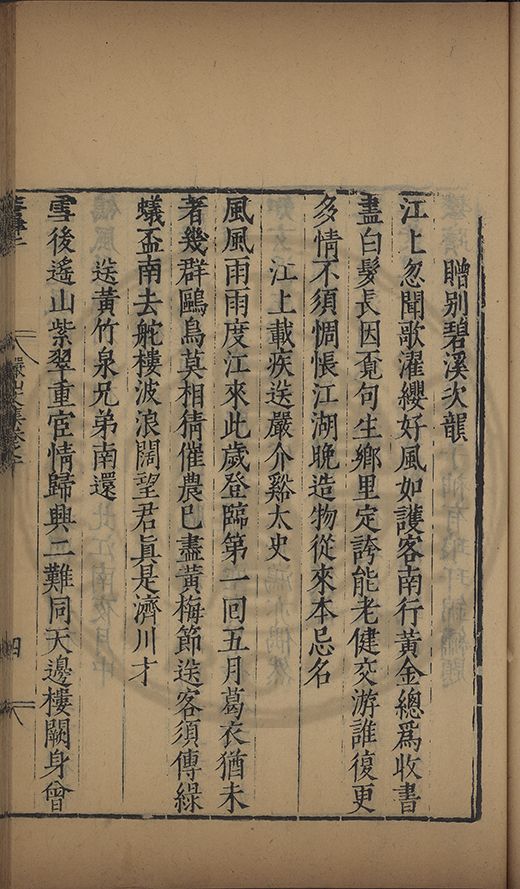 贈別碧溪次韻
江上忽聞歌濯纓好風如護客南行黃金總爲收書
盡白髮長因覓句生鄉里定誇能老健交游誰復更
多情不須惆悵江湖晚造物從來本忌名
江上載疾送嚴介谿太史
風風雨雨度江來此歲登臨第一回五月葛衣猶未
著幾群鷗鳥莫相猜催農已盡黃梅節送客須傳綠
蟻盃南去舵樓波浪闊望君眞是濟川才
送黃竹泉兄弟南還
雪後遙山紫翠重宦情歸興二難同天邊樓闕身曾
四